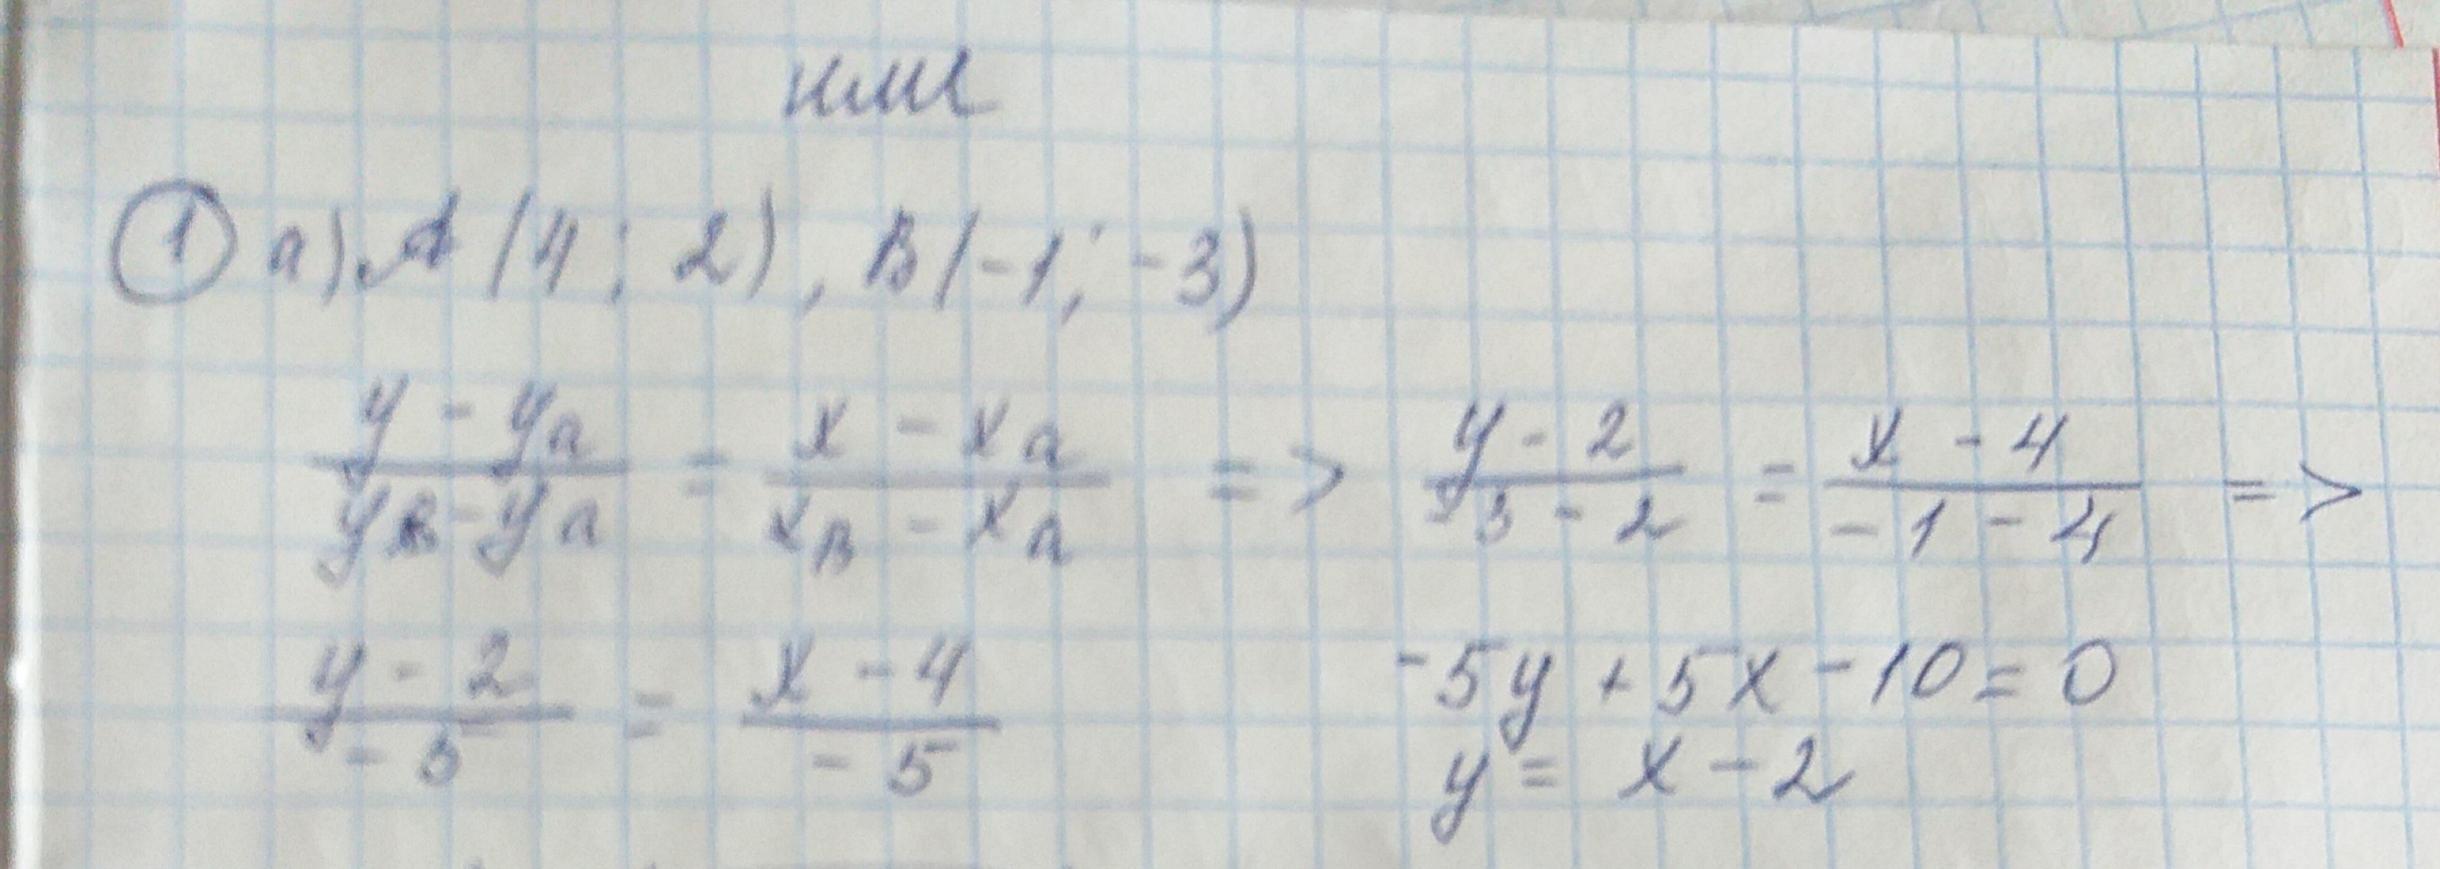 или
① а) A (4; 2), B(-1; -3)
(y - yA)/(yB - yA) = (x - xA)/(xB - xA) => (y - 2)/(-3 - 2) = (x - 4)/(-1 - 4) =>
(y - 2)/(-5) = (x - 4)/(-5) -5y + 5x - 10 = 0
y = x - 2